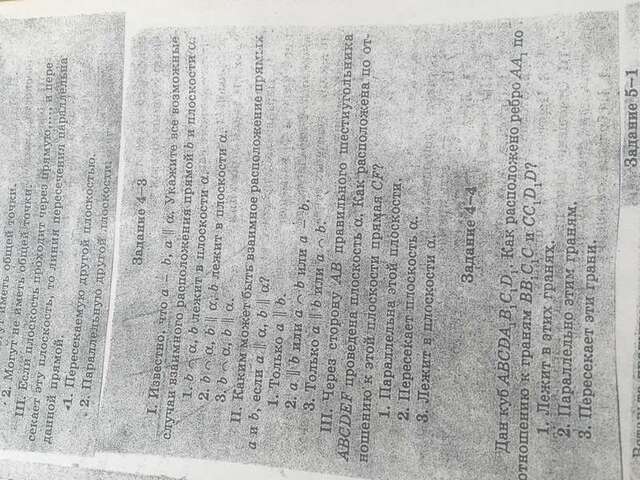 2. Могут не иметь общей точки.
III. Если плоскость проходит через прямую, ..., и пере-
секает эту плоскость, то линия пересечения параллельна
данной прямой.
1. Пересекаемую другой плоскостью.
2. Параллельную другой плоскости
Задание 4–3
I. Известно, что a ∸ b, a ∥ α. Укажите все возможные
случаи взаимного расположения прямой b и плоскости α:
1. b ∩ α, b лежит в плоскости α.
2. b ∩ α, b ∥ α, b лежит в плоскости α.
3. b ∩ α, b ∥ α.
II. Каким может быть взаимное расположение прямых
a и b, если a ∥ α, b ∥ α?
1. Только a ∥ b.
2. a ∥ b или a ∩ b или a ∸ b.
3. Только a ∥ b или a ∩ b.
III. Через сторону AB правильного шестиугольника
ABCDEF проведена плоскость α. Как расположена по от-
ношению к этой плоскости прямая CF?
1. Параллельна этой плоскости.
2. Пересекает плоскость α.
3. Лежит в плоскости α.
Задание 4–4
Дан куб ABCDA₁B₁C₁D₁. Как расположено ребро AA₁ по
отношению к граням BB₁C₁C и CC₁D₁D?
1. Лежит в этих гранях.
2. Параллельно этим граням.
3. Пересекает эти грани.
Задание 5–1